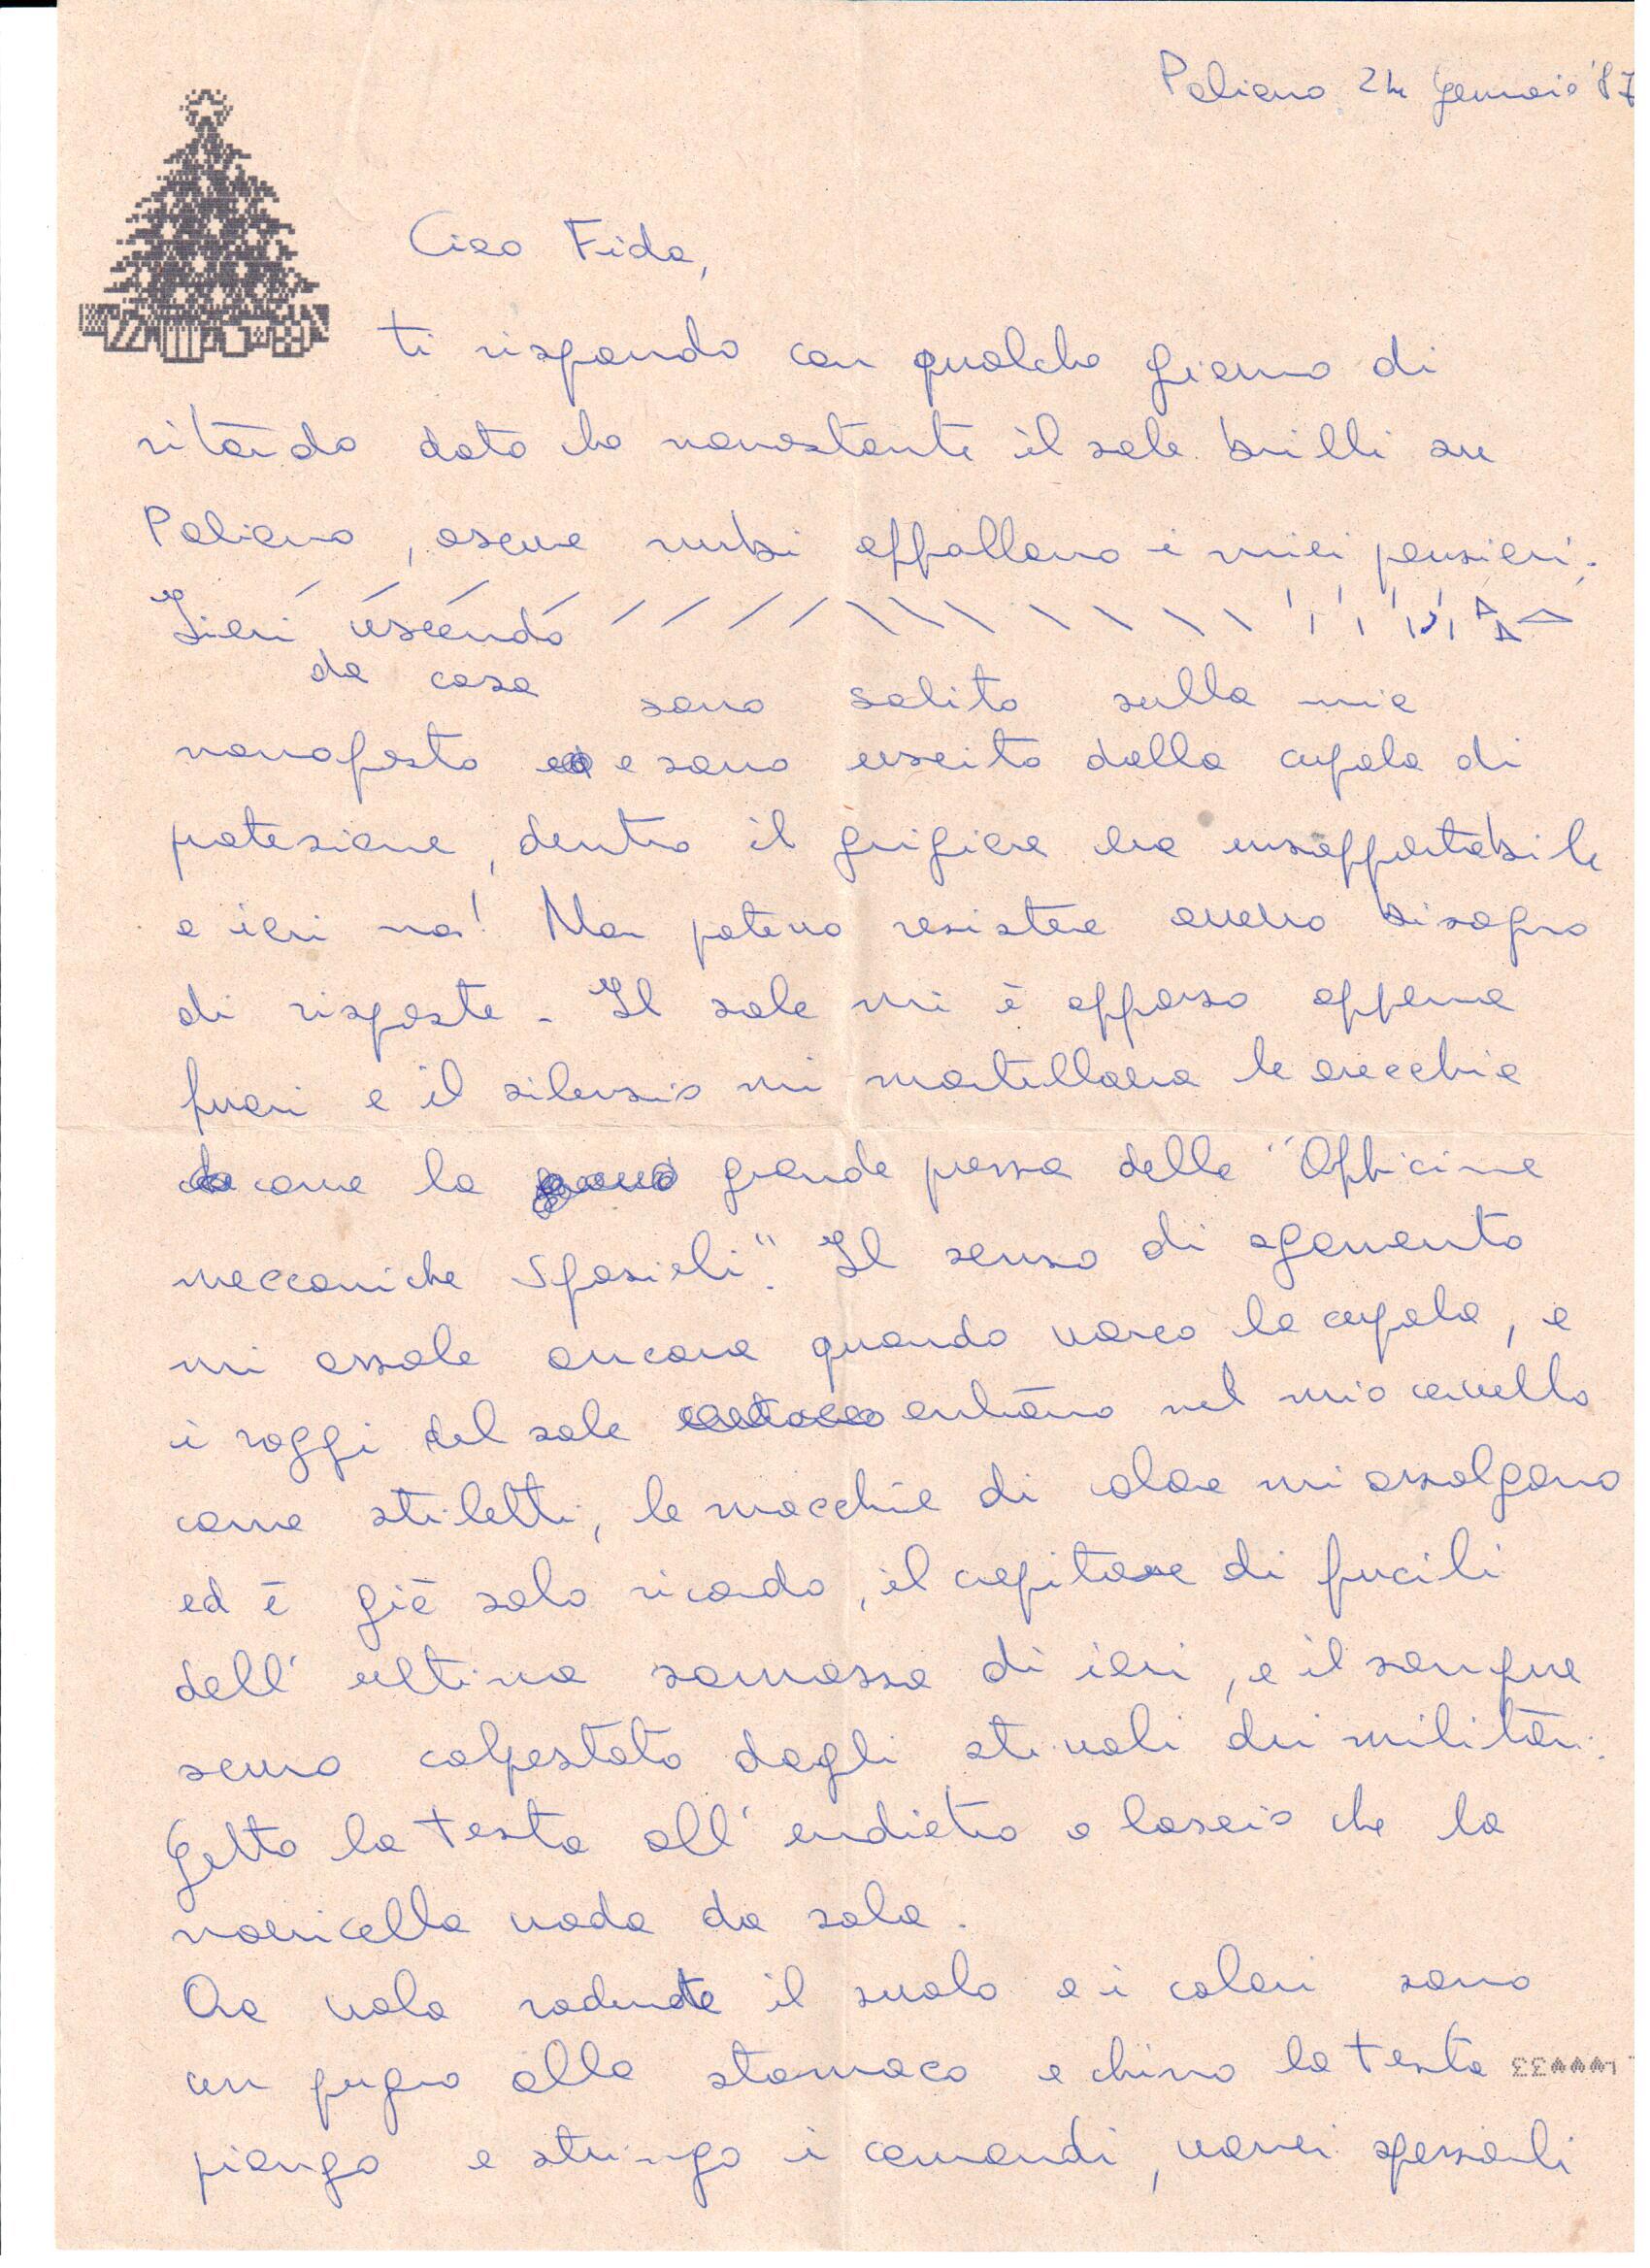 Paliano 24 Gennaio '87
Ciao Fida,
ti rispondo con qualche giorno di
ritardo dato che nonostante il sole brilli su
Paliano, oscure nubi affollano i miei pensieri.
Ieri uscendo
da casa sono salito sulla mia
monoposto e sono uscito dalla cupola di
protezione, dentro il grigiore era insopportabile
e ieri no! Non potevo resistere avevo bisogno
di risposte - Il sole mi è apparso appena
fuori e il silenzio mi martellava le orecchie
come la grande pressa delle "Officine
meccaniche Spaziali". Il senso di sgomento
mi assale ancora quando varco la cupola, e
i raggi del sole entrano nel mio cervello
come stiletti, le macchie di colore mi assalgono
ed è già solo ricordo, il crepitare di fucili
dell'ultima sommossa di ieri, e il sangue
scuro calpestato dagli stivali dei militari.
Getto la testa all'indietro e lascio che la
navicella vada da sola.
Ora volo radente il suolo e i colori sono
un pugno allo stomaco e chino la testa
piango e stringo i comandi, vorrei spezzarli